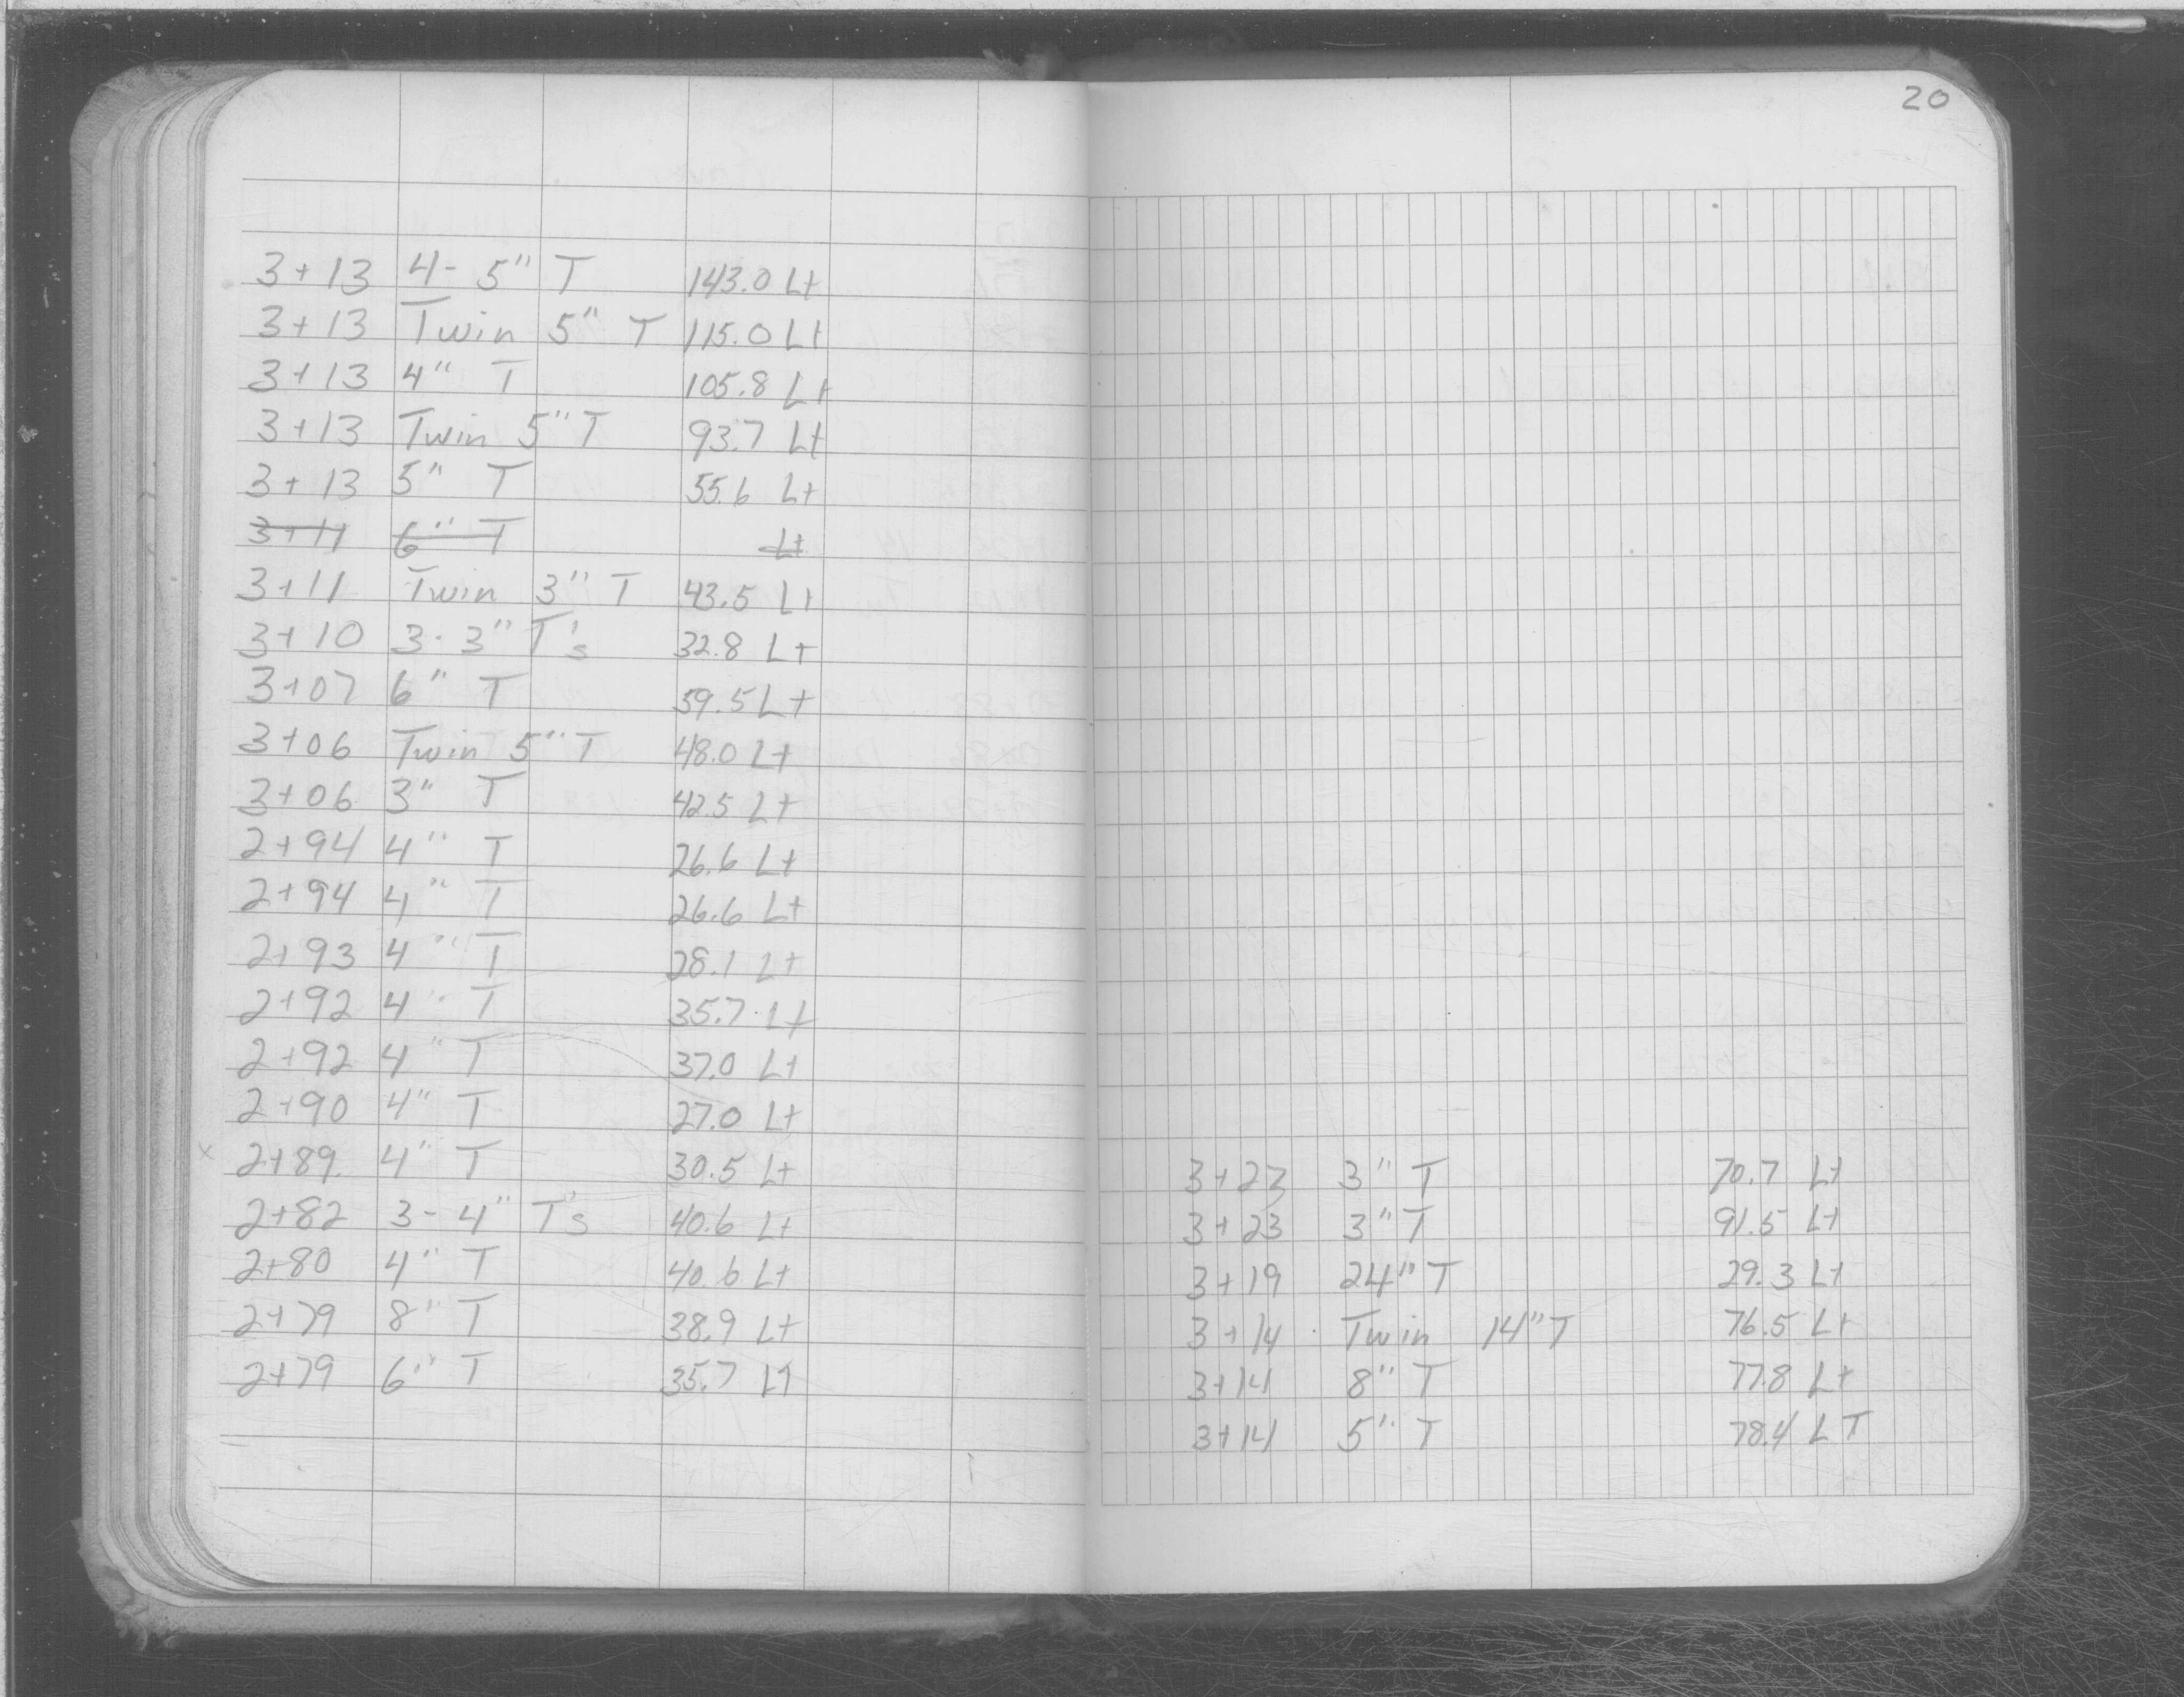 3+13 4- 5" T 143.0 Lt
3+13 Twin 5" T 115.0 Lt
3+13 4" T 105.8 Lt
3+13 Twin 5" T 93.7 Lt
3+13 5" T 55.6 Lt
3+11 6" T Lt
3+11 Twin 3" T 43.5 Lt
3+10 3-3" T's 32.8 Lt
3+07 6" T 59.5 Lt
3+06 Twin 5" T 48.0 Lt
3+06 3" T 42.5 Lt
2+94 4" T 26.6 Lt
2+94 4" T 26.6 Lt
2+93 4" T 28.1 Lt
2+92 4" T 35.7 Lt
2+92 4" T 37.0 Lt
2+90 4" T 27.0 Lt
x 2+89 4" T 30.5 Lt
2+82 3-4" T's 40.6 Lt
2+80 4" T 40.6 Lt
2+79 8" T 38.9 Lt
2+79 6" T 35.7 Lt
20
3+23 3" T 70.7 Lt
3+23 3" T 91.5 Lt
3+19 24" T 29.3 Lt
3+14 Twin 14" T 76.5 Lt
3+14 8" T 77.8 Lt
3+14 5" T 78.4 LT